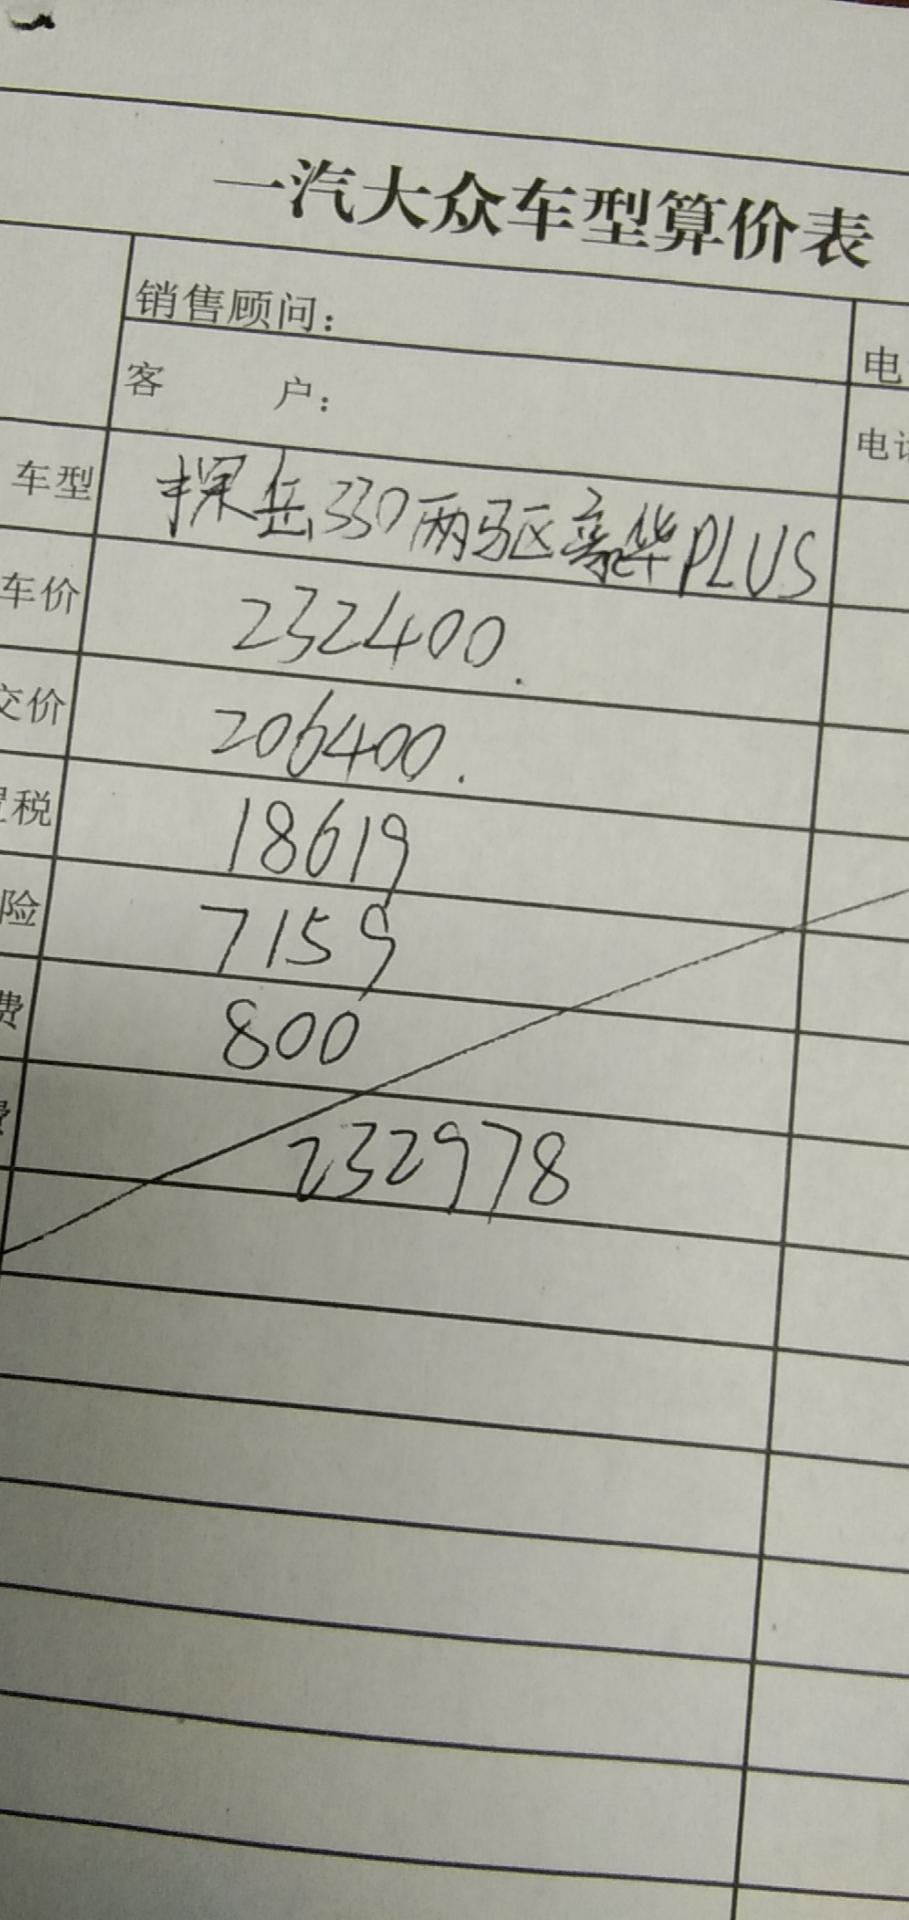 一汽大众车型算价表
销售顾问：
电
客 户：
电话
车型 探岳330两驱豪华PLUS
车价 232400.
交价 206400.
置税 18619
险 7159
费 800
费 232978